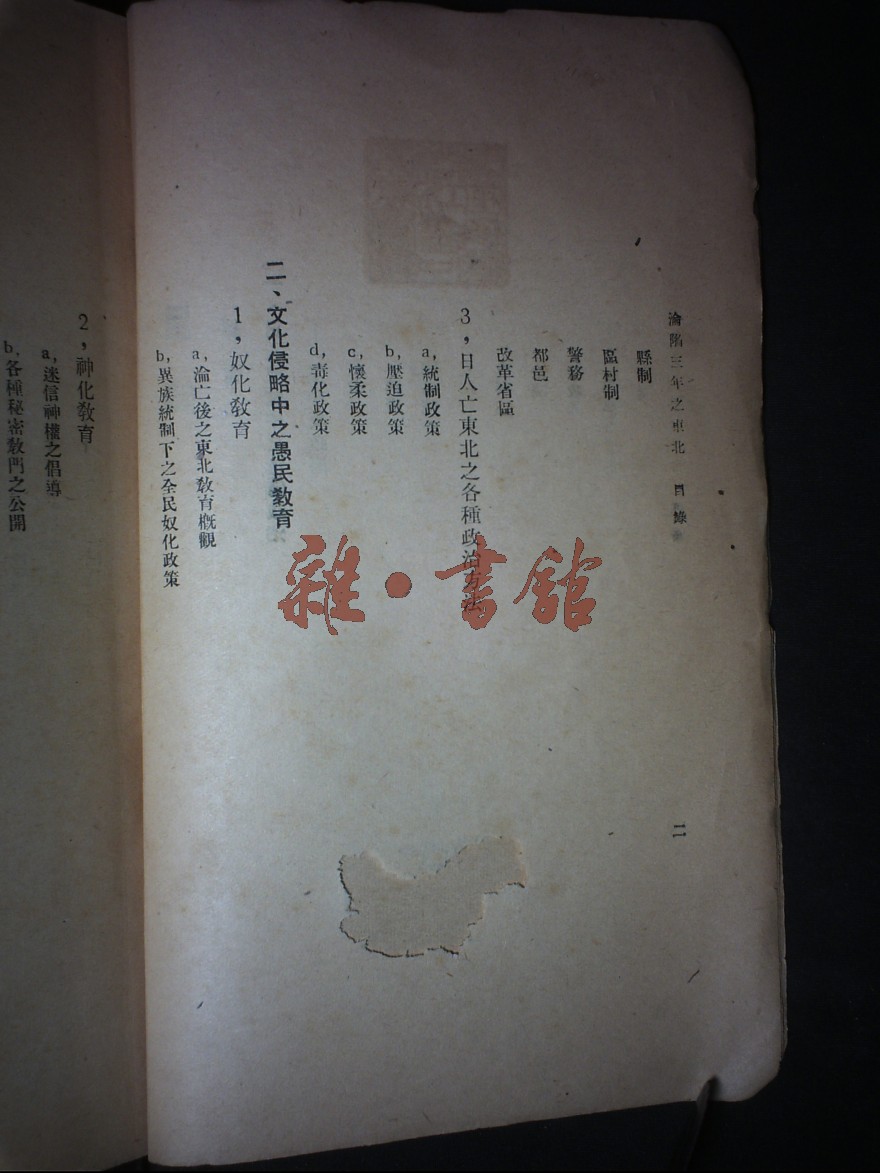 淪陷三年之東北　目錄　二
縣制
區村制
警務
都邑
改革省區
3，日人亡東北之各種政治方法
a，統制政策
b，壓迫政策
c，懷柔政策
d，毒化政策
二、文化侵略中之愚民教育
1，奴化教育
a，淪亡後之東北教育概觀
b，異族統制下之全民奴化政策
2，神化教育
a，迷信神權之倡導
b，各種秘密教門之公開
雜·書館